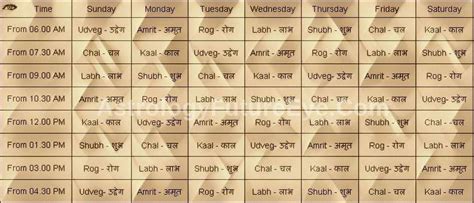 Sunday Monday Tuesday Wednesday Thursday Friday Saturday
From 06.00 AM Udveg - उद्वेग Amrit - अमृत Rog - रोग Labh - लाभ Shubh - शुभ Chal - चल Kaal - काल
From 07.30 AM Chal - चल Kaal - काल Udveg- उद्वेग Amrit - अमृत Rog - रोग Labh - लाभ Shubh - शुभ
From 09.00 AM Labh - लाभ Shubh - शुभ Chal - चल Kaal - काल Udveg- उद्वेग Amrit - अमृत Rog - रोग
From 10.30 AM Amrit - अमृत Rog - रोग Labh - लाभ Shubh - शुभ Chal - चल Kaal - काल Udveg- उद्वेग
AstrologyFutureEye.Com
From 12.00 PM Kaal - काल Udveg- उद्वेग Amrit - अमृत Rog - रोग Labh - लाभ Shubh - शुभ Chal - चल
From 01.30 PM Shubh - शुभ Chal - चल Kaal - काल Udveg- उद्वेग Amrit - अमृत Rog - रोग Labh - लाभ
From 03.00 PM Rog - रोग Labh - लाभ Shubh - शुभ Chal - चल Kaal - काल Udveg- उद्वेग Amrit - अमृत
From 04.30 PM Udveg- उद्वेग Amrit - अमृत Rog - रोग Labh - लाभ Shubh - शुभ Chal - चल Kaal - काल